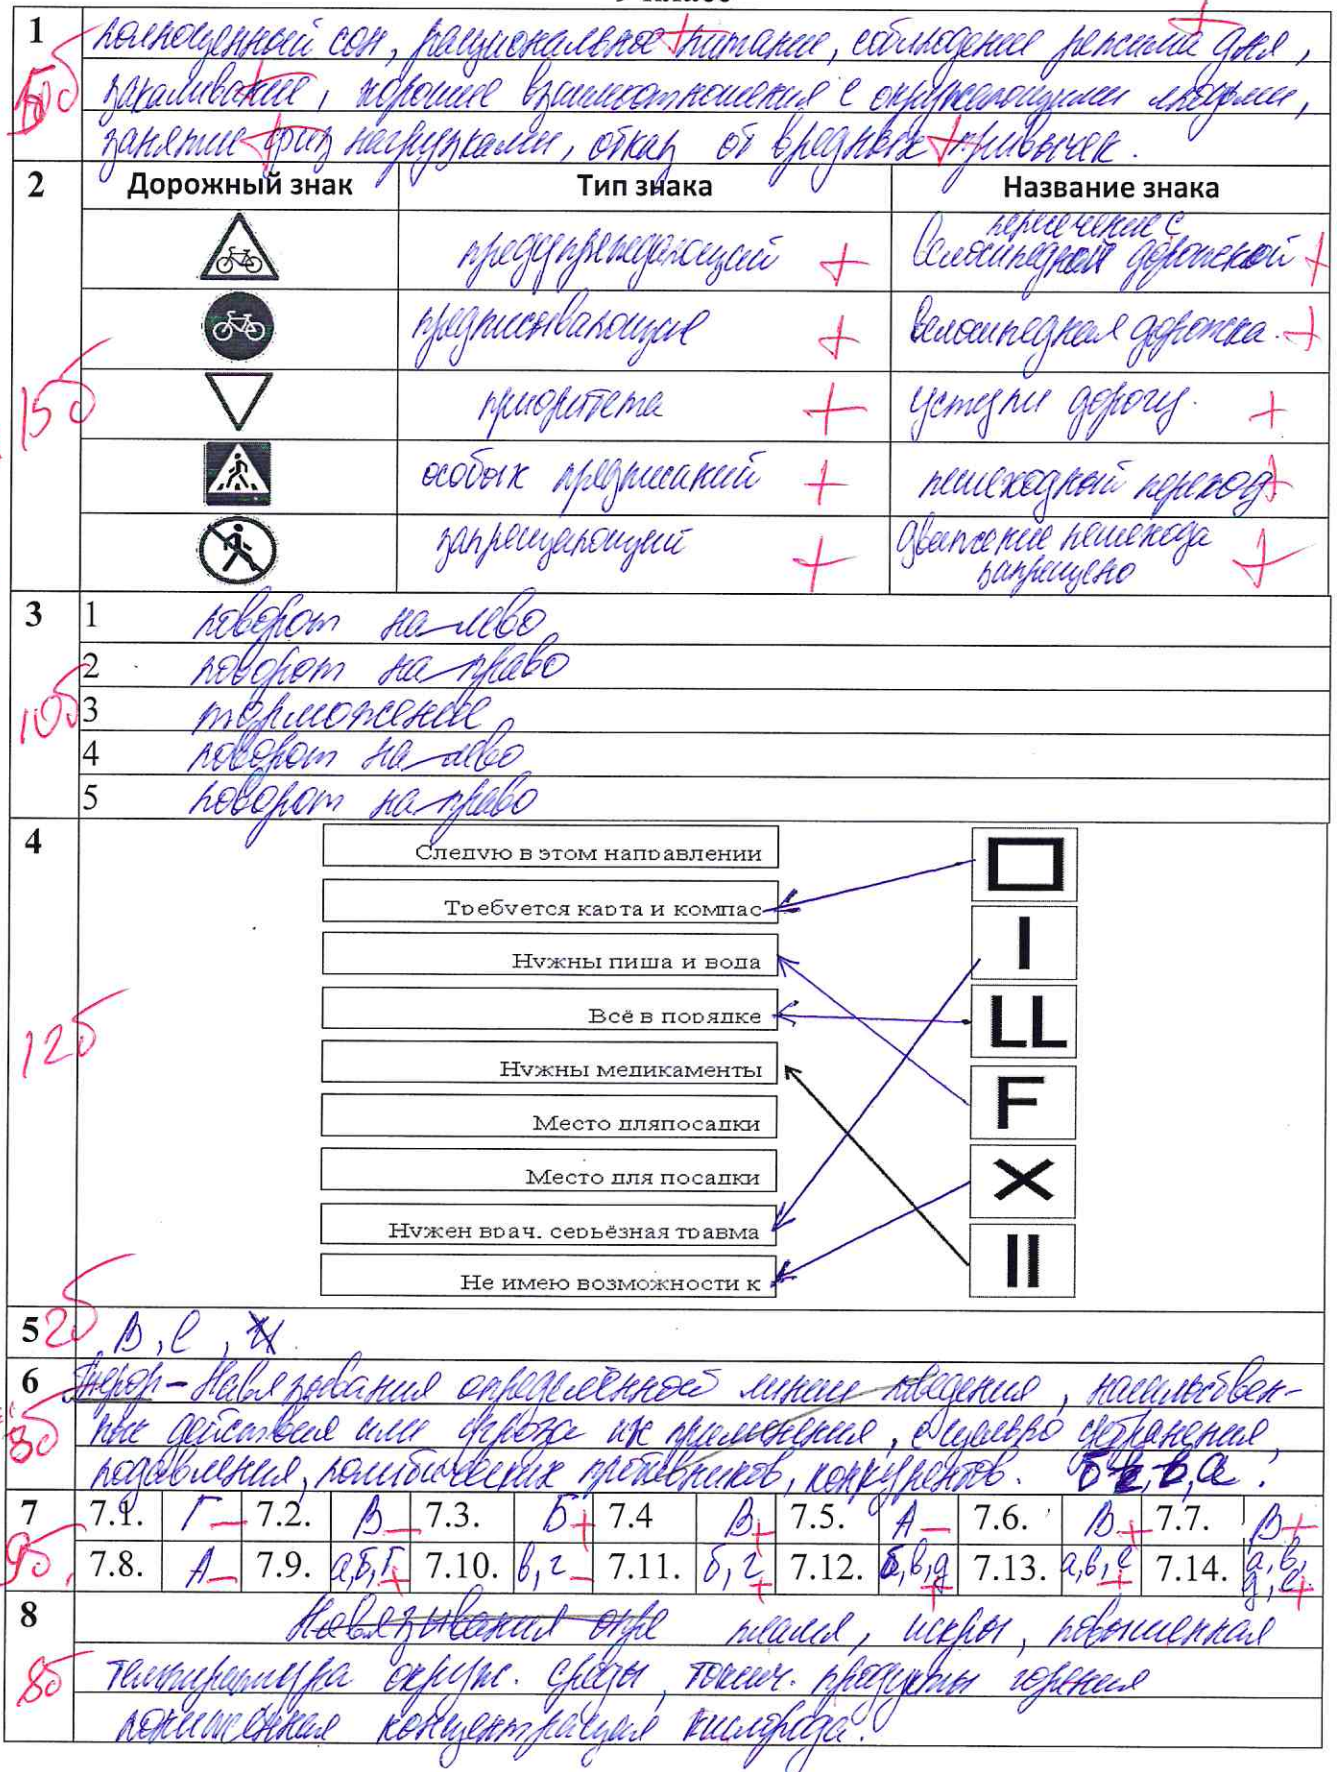 9 класс
1 полноценный сон, рациональное питание, соблюдение режима дня,
закаливание, хорошие взаимоотношения с окружающими людьми,
занятие физ нагрузками, отказ от вредных привычек.
2 Дорожный знак Тип знака Название знака
предупреждающий + пересечение с велосипедной дорожкой +
предписывающие + велосипедная дорожка. +
15б
приоритета + уступи дорогу. +
особых предписаний + пешеходный переход +
запрещающий + движение пешехода запрещено +
3 1 поворот на лево
2 поворот на право
10б
3 торможение
4 поворот на лево
5 поворот на право
4
Следую в этом направлении
Требуется карта и компас
Нужны пиша и вода
I
Всё в порядке LL
12б
Нужны медикаменты
F
Место дляпосадки
Место для посадки X
Нужен врач. серьёзная травма
Не имею возможности к II
5 2б В, е,
6 Террор - Навязывания определённой линии поведения, насильствен-
ные действия или угроза их применения, с целью устранения,
подавления, политических противников, конкурентов. б, в, а.
7 7.1. Г – 7.2. В – 7.3. Б + 7.4 В + 7.5. А – 7.6. В + 7.7. В +
9б
7.8. А – 7.9. а,б,г + 7.10. в,г – 7.11. б,г + 7.12. б,в,д + 7.13. а,в,е + 7.14. а,в,д,е +
8 Навязывания опре пламя, искры, повышенная
8б
температура окруж. среды, токсич. продукты горения
пониженная концентрация кислорода.